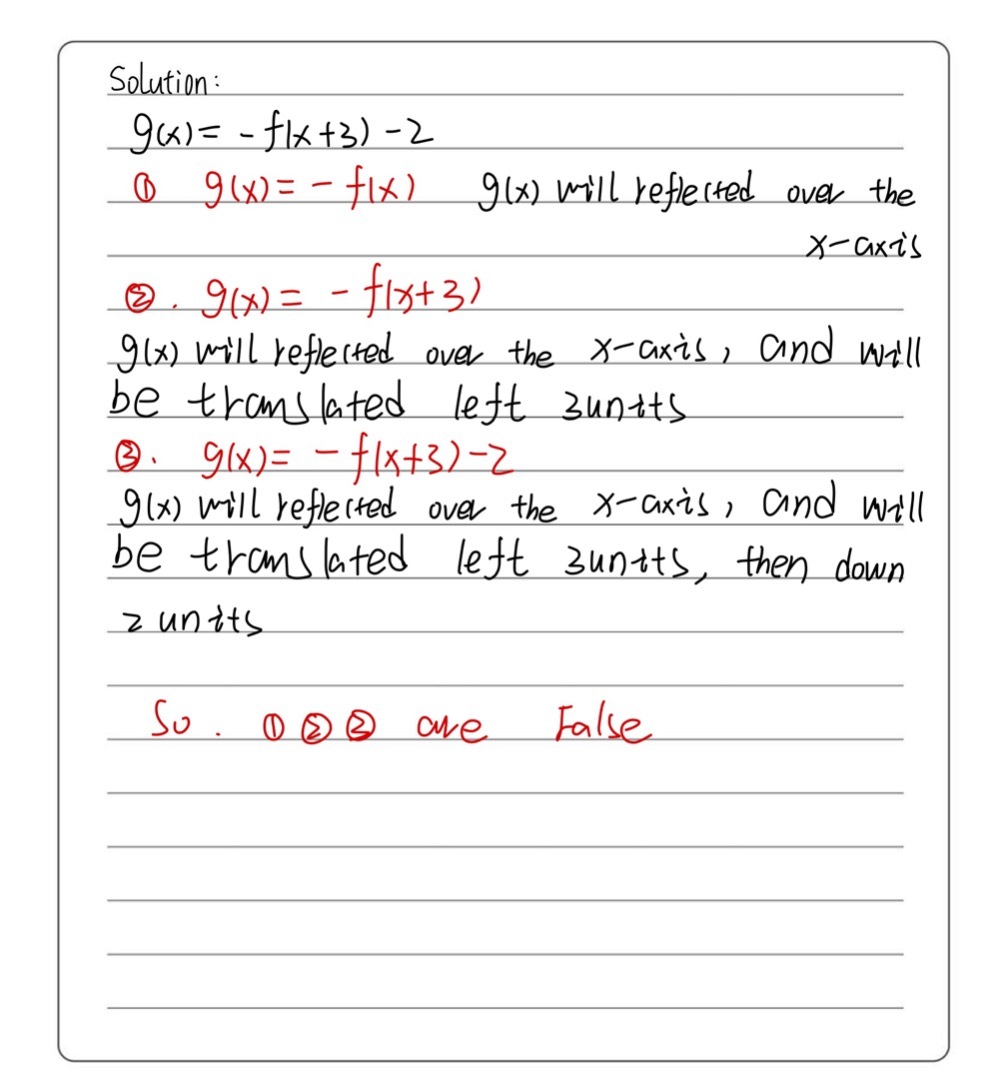 Solution:
g(x) = - f(x+3) - 2
① g(x) = - f(x) g(x) will reflected over the
x-axis
②. g(x) = - f(x+3)
g(x) will reflected over the x-axis, and will
be translated left 3units
③. g(x) = - f(x+3) - 2
g(x) will reflected over the x-axis, and will
be translated left 3units, then down
2 units
So. ① ② ③ are False